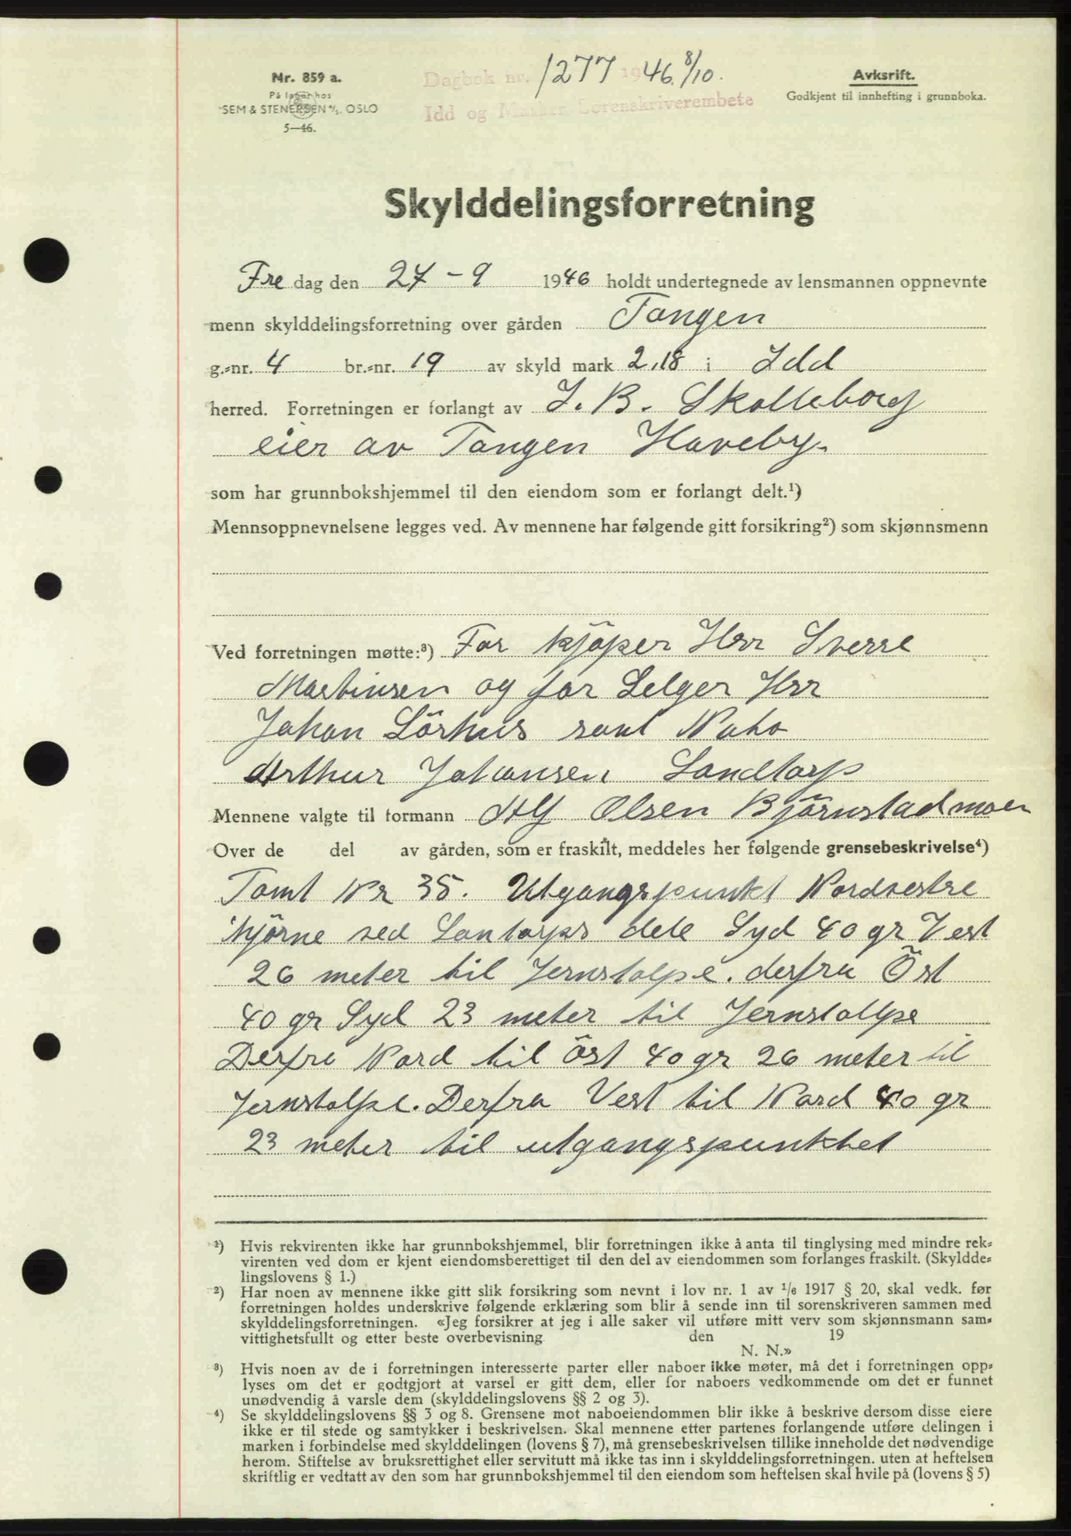 Nr. 859 a.
På lager hos
SEM & STENERSEN A/S, OSLO
5—46.
Dagbok nr. 1277 1946 8/10.
Idd og Marker Sorenskriverembete
Avksrift.
Godkjent til innhefting i grunnboka.
Skylddelingsforretning
Fre dag den 27 - 9 1946 holdt undertegnede av lensmannen oppnevnte
menn skylddelingsforretning over gården Tangen
g.-nr. 4 br.-nr. 19 av skyld mark 2,18 i Idd
herred. Forretningen er forlangt av J. B. Skolleborg
eier av Tangen Haveby.
som har grunnbokshjemmel til den eiendom som er forlangt delt.¹)
Mennsoppnevnelsene legges ved. Av mennene har følgende gitt forsikring²) som skjønnsmenn
Ved forretningen møtte:³) For kjöper Herr Sverre
Martinsen og for Selger Herr
Johan Sörhus samt Nabo
Arthur Johansen Sandtorp
Mennene valgte til formann Alf Olsen Björnstadmoen
Over de del av gården, som er fraskilt, meddeles her følgende grensebeskrivelse⁴)
Tomt Nr 35. Utgangspunkt Nordvestre
hjörne ved Santorps dele Syd 40 gr Vest
26 meter til Jernstolpe. derfra Öst
40 gr Syd 23 meter til Jernstolpe
Derfra Nord til Öst 40 gr 26 meter til
Jernstolpe. Derfra Vest til Nord 40 gr
23 meter til utgangspunktet
¹) Hvis rekvirenten ikke har grunnbokshjemmel, blir forretningen ikke å anta til tinglysing med mindre rek-
virenten ved dom er kjent eiendomsberettiget til den del av eiendommen som forlanges fraskilt. (Skyldde-
lingslovens § 1.)
²) Har noen av mennene ikke gitt slik forsikring som nevnt i lov nr. 1 av 1/6 1917 § 20, skal vedk. før
forretningen holdes underskrive følgende erklæring som blir å sende inn til sorenskriveren sammen med
skylddelingsforretningen. «Jeg forsikrer at jeg i alle saker vil utføre mitt verv som skjønnsmann sam-
vittighetsfullt og etter beste overbevisning den 19
N. N.»
³) Hvis noen av de i forretningen interesserte parter eller naboer ikke møter, må det i forretningen opp-
lyses om det er godtgjort at varsel er gitt dem, eller for naboers vedkommende om det er funnet
unødvendig å varsle dem (skylddelingslovens §§ 2 og 3).
⁴) Se skylddelingslovens §§ 3 og 8. Grensene mot naboeiendommen blir ikke å beskrive dersom disse eiere
ikke er til stede og samtykker i beskrivelsen. Skal mennene etter partenes forlangende utføre delingen i
marken i forbindelse med skylddelingen (lovens § 7), må grensebeskrivelsen tillike inneholde det nødvendige
herom. Stiftelse av bruksrettighet eller servitutt må ikke tas inn i skylddelingsforretningen. uten at heftelsen
skriftlig er vedtatt av den som har grunnbokshjemmel til den eiendom som heftelsen skal hvile på (lovens § 5)